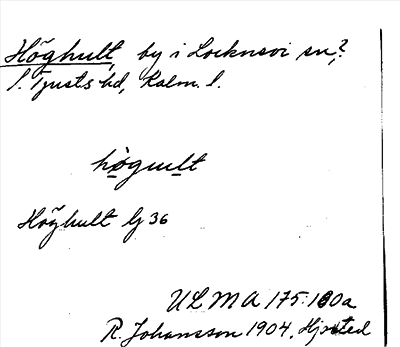 Höghult, by i Locknevi sn,?
S. Tjusts hd, Kalm. l.
högult
Höghult Gj 36
ULMA 175:100a
R. Johansson 1904. Hjorted